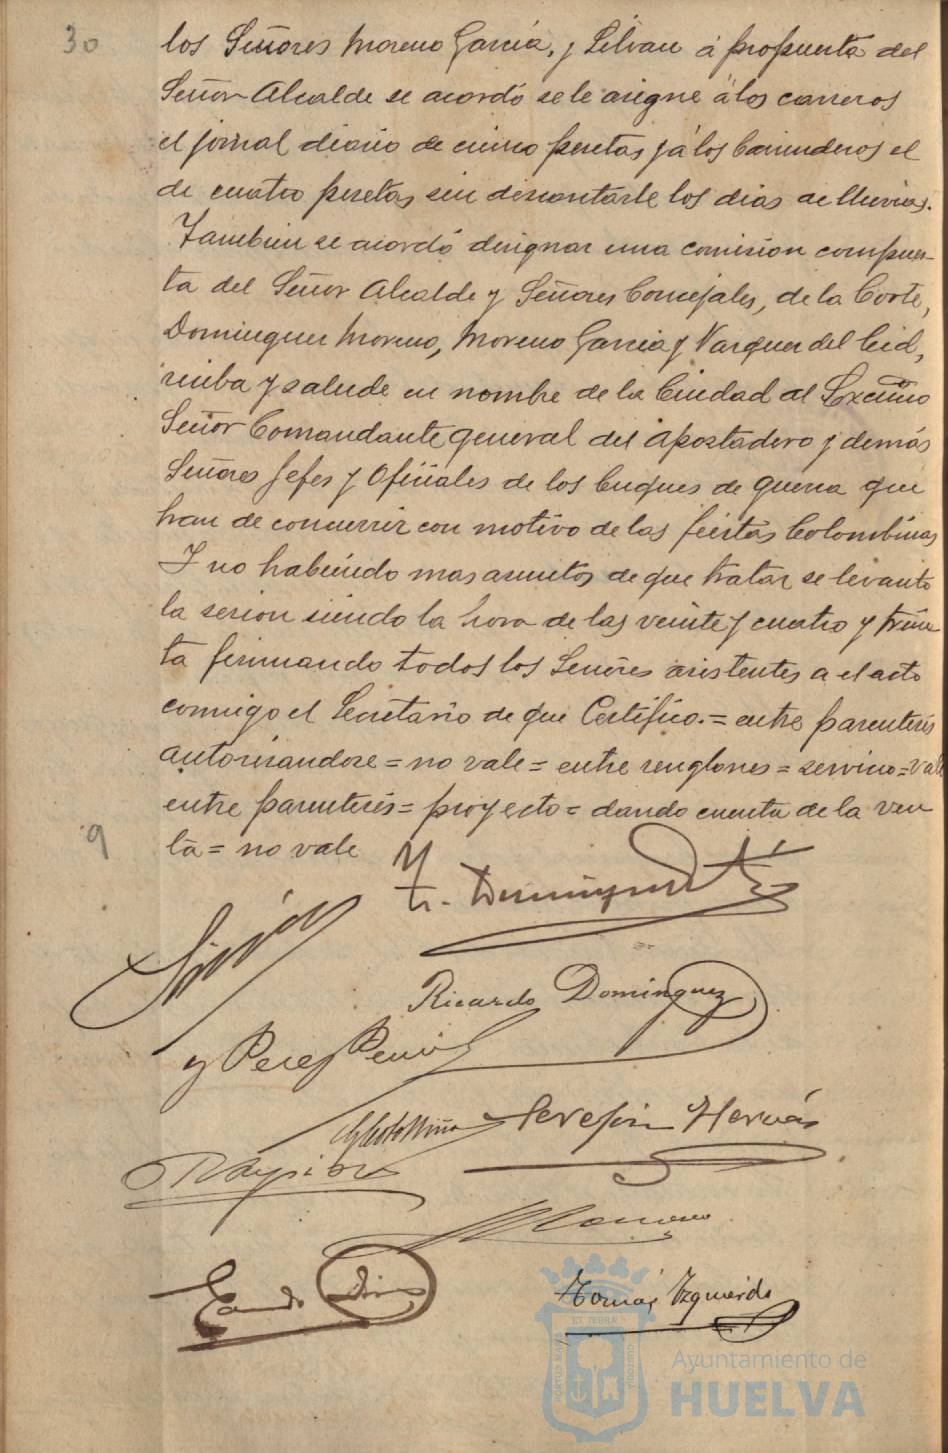 30
los Señores Moreno Garcia, y Silvan á propuesta del
Señor Alcalde se acordó se le asigne á los carreros
el jornal diario de cinco pesetas y á los barrenderos el
de cuatro pesetas sin descontarle los dias de lluvias.
Tambien se acordó designar una comision compues-
ta del Señor Alcalde y Señores Concejales, de la Corte,
Dominguez Moreno, Moreno Garcia y Vazquez del Cid,
reciba y salude en nombre de la Ciudad al Excmo
Señor Comandante general del Apostadero y demás
Señores Jefes y Oficiales de los buques de guerra que
han de concurrir con motivo de las fiestas Colombinas
Y no habiendo mas asuntos de que tratar se levantó
la sesion siendo la hora de las veinte y cuatro y trein
ta firmando todos los Señores asistentes a el acto
conmigo el Secretario de que Certifico.= entre parentesis
autorisandose = no vale = entre renglones = servicio = vale
entre parentesis = proyecto = dando cuenta de la ven
9
ta = no vale
Ricardo Dominguez
y Perez
Serefin Hervás
Moreno
Tomás Yzquierdo
Ayuntamiento de
HUELVA